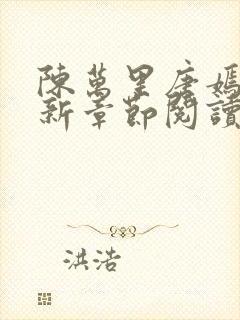 陳萬里唐嫣
新章節閱讀
洪浩